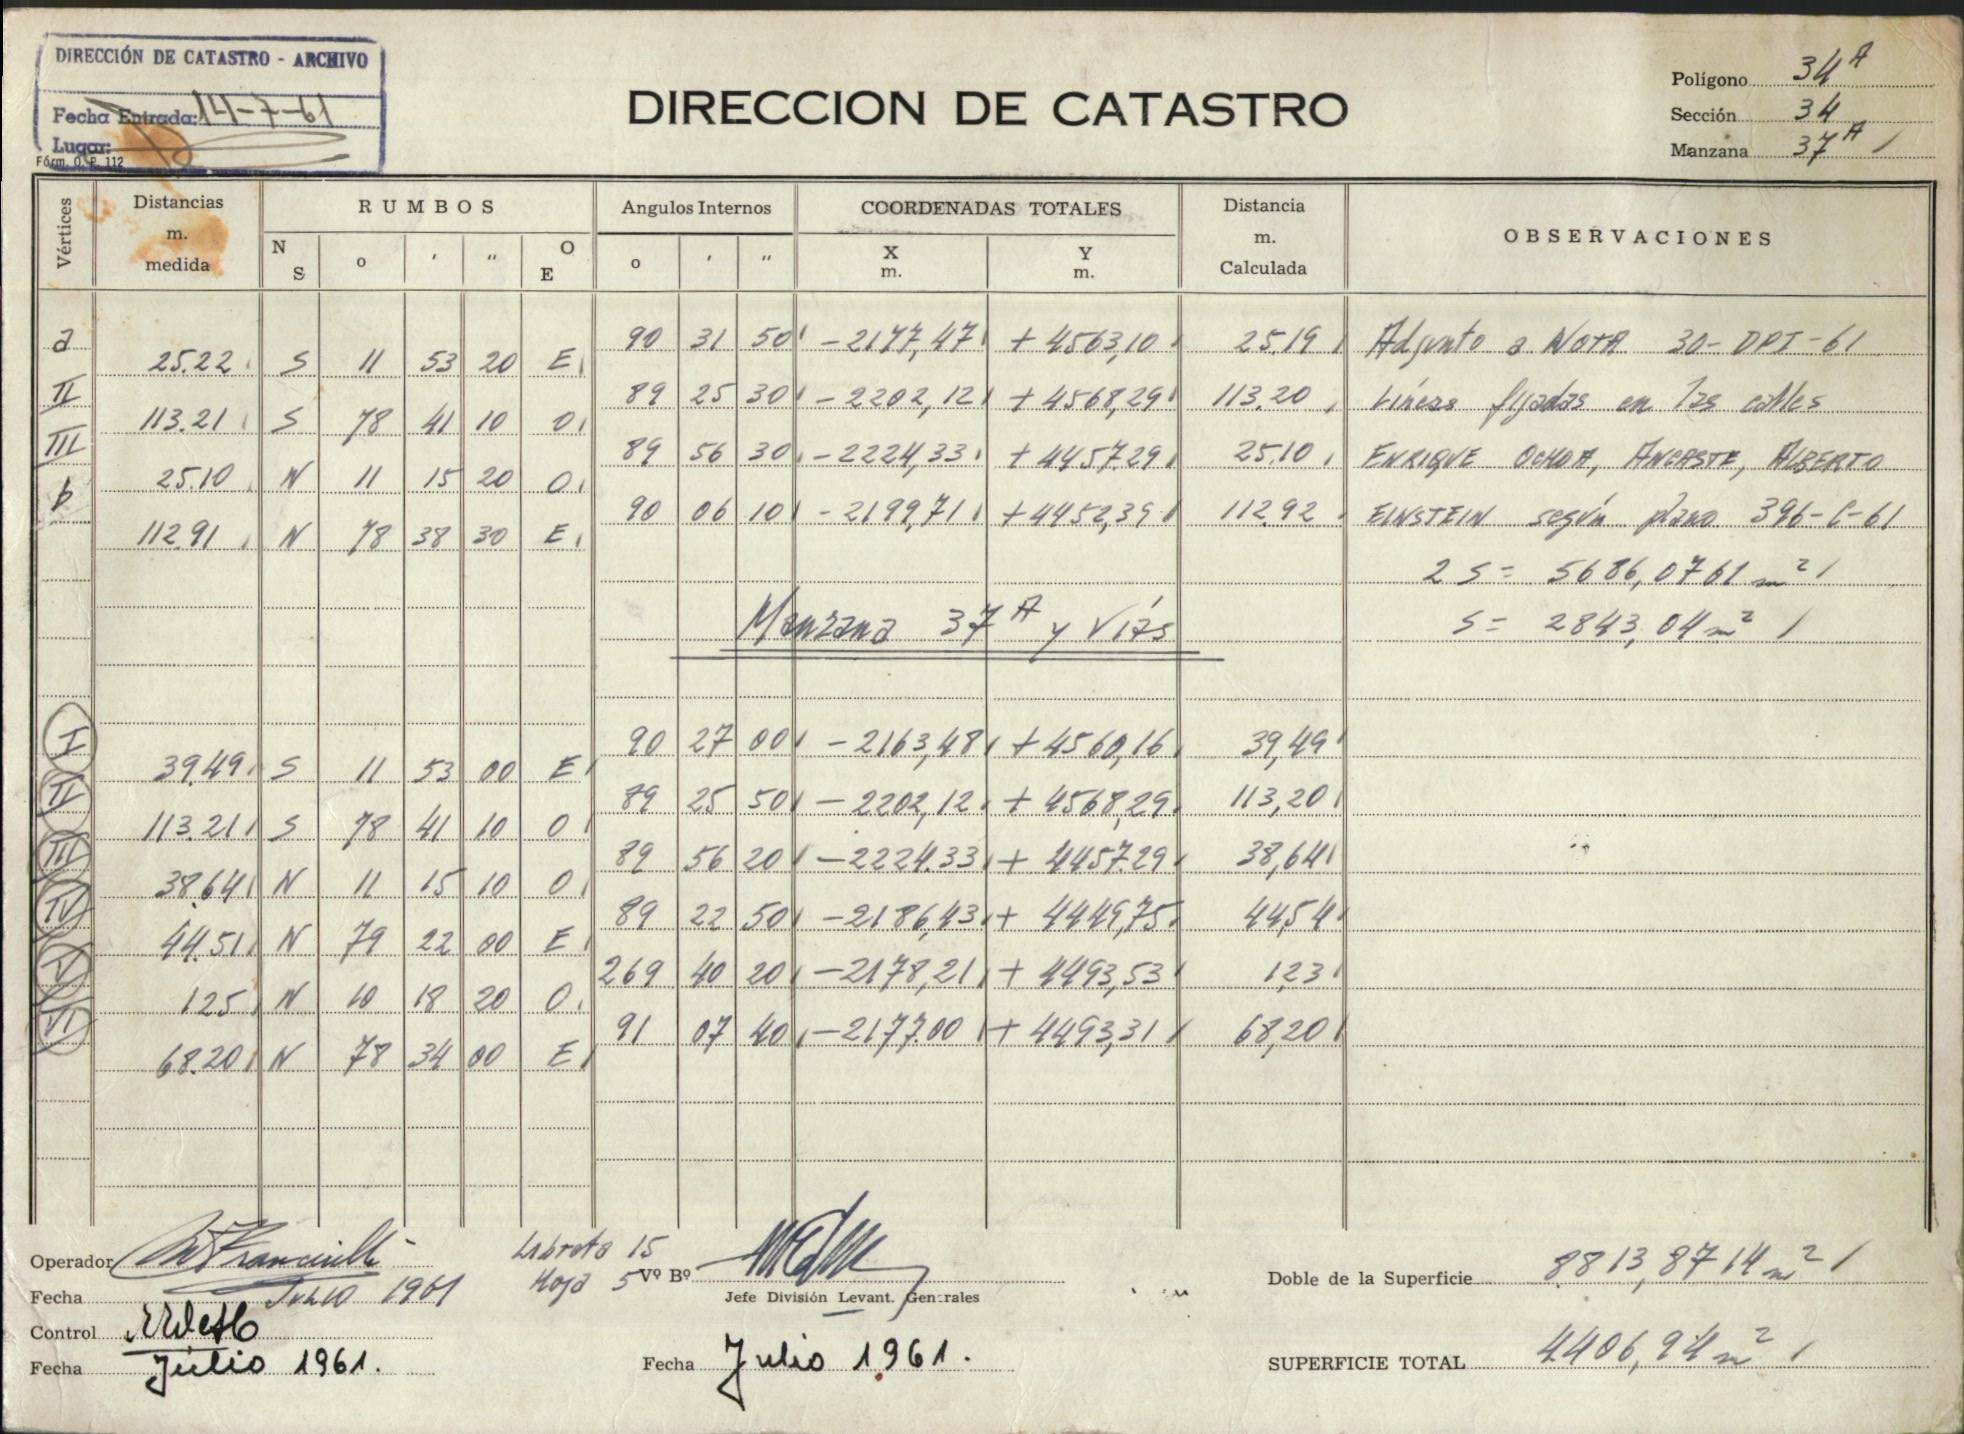 DIRECCIÓN DE CATASTRO - ARCHIVO
Fecha Entrada: 14-7-61
Lugar:
Fórm. O. P. 112
DIRECCION DE CATASTRO
Polígono 34 A
Sección 34
Manzana 37 A
Vértices Distancias m. medida RUMBOS Angulos Internos COORDENADAS TOTALES Distancia m. Calculada OBSERVACIONES
N S o ' " O E o ' " X m. Y m.
a 90 31 50 -2177,47 +4563,10 25.19 Adjunto a NOTA 30-DPI-61
25.22 S 11 53 20 E
II 89 25 30 -2202,12 +4568,29 113.20 Líneas fijadas en las calles
113.21 S 78 41 10 O
III 89 56 30 -2224,33 +4457.29 25.10 ENRIQUE OCHOA, ANCASTE, ALBERTO
25.10 N 11 15 20 O
b 90 06 10 -2199,71 +4452,39 112.92 EINSTEIN según plano 396-C-61
112.91 N 78 38 30 E
2 S = 5686,0761 m²
Manzana 37 A y Vías S = 2843,04 m²
I 90 27 00 -2163,48 +4560,16 39,49
39.49 S 11 53 00 E
II 89 25 50 -2202,12 +4568,29 113,20
113.21 S 78 41 10 O
III 89 56 20 -2224.33 +4457.29 38,64
38.64 N 11 15 10 O
IV 89 22 50 -2186,43 +4449,75 44,54
44.51 N 79 22 00 E
V 269 40 20 -2178,21 +4493,53 1,23
1.25 N 10 18 20 O
VI 91 07 40 -2177.00 +4493,31 68,20
68.20 N 78 34 00 E
Operador
Libreta 15
Hoja 5
Vº Bº
Jefe División Levant. Generales
Doble de la Superficie 8813,8714 m²
Fecha Julio 1961
Control
Fecha Julio 1961.
Fecha Julio 1961.
SUPERFICIE TOTAL 4406,94 m²